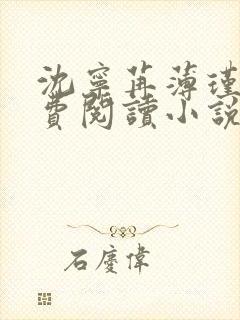 沈寧苒薄瑾
費閱讀小說
石慶偉